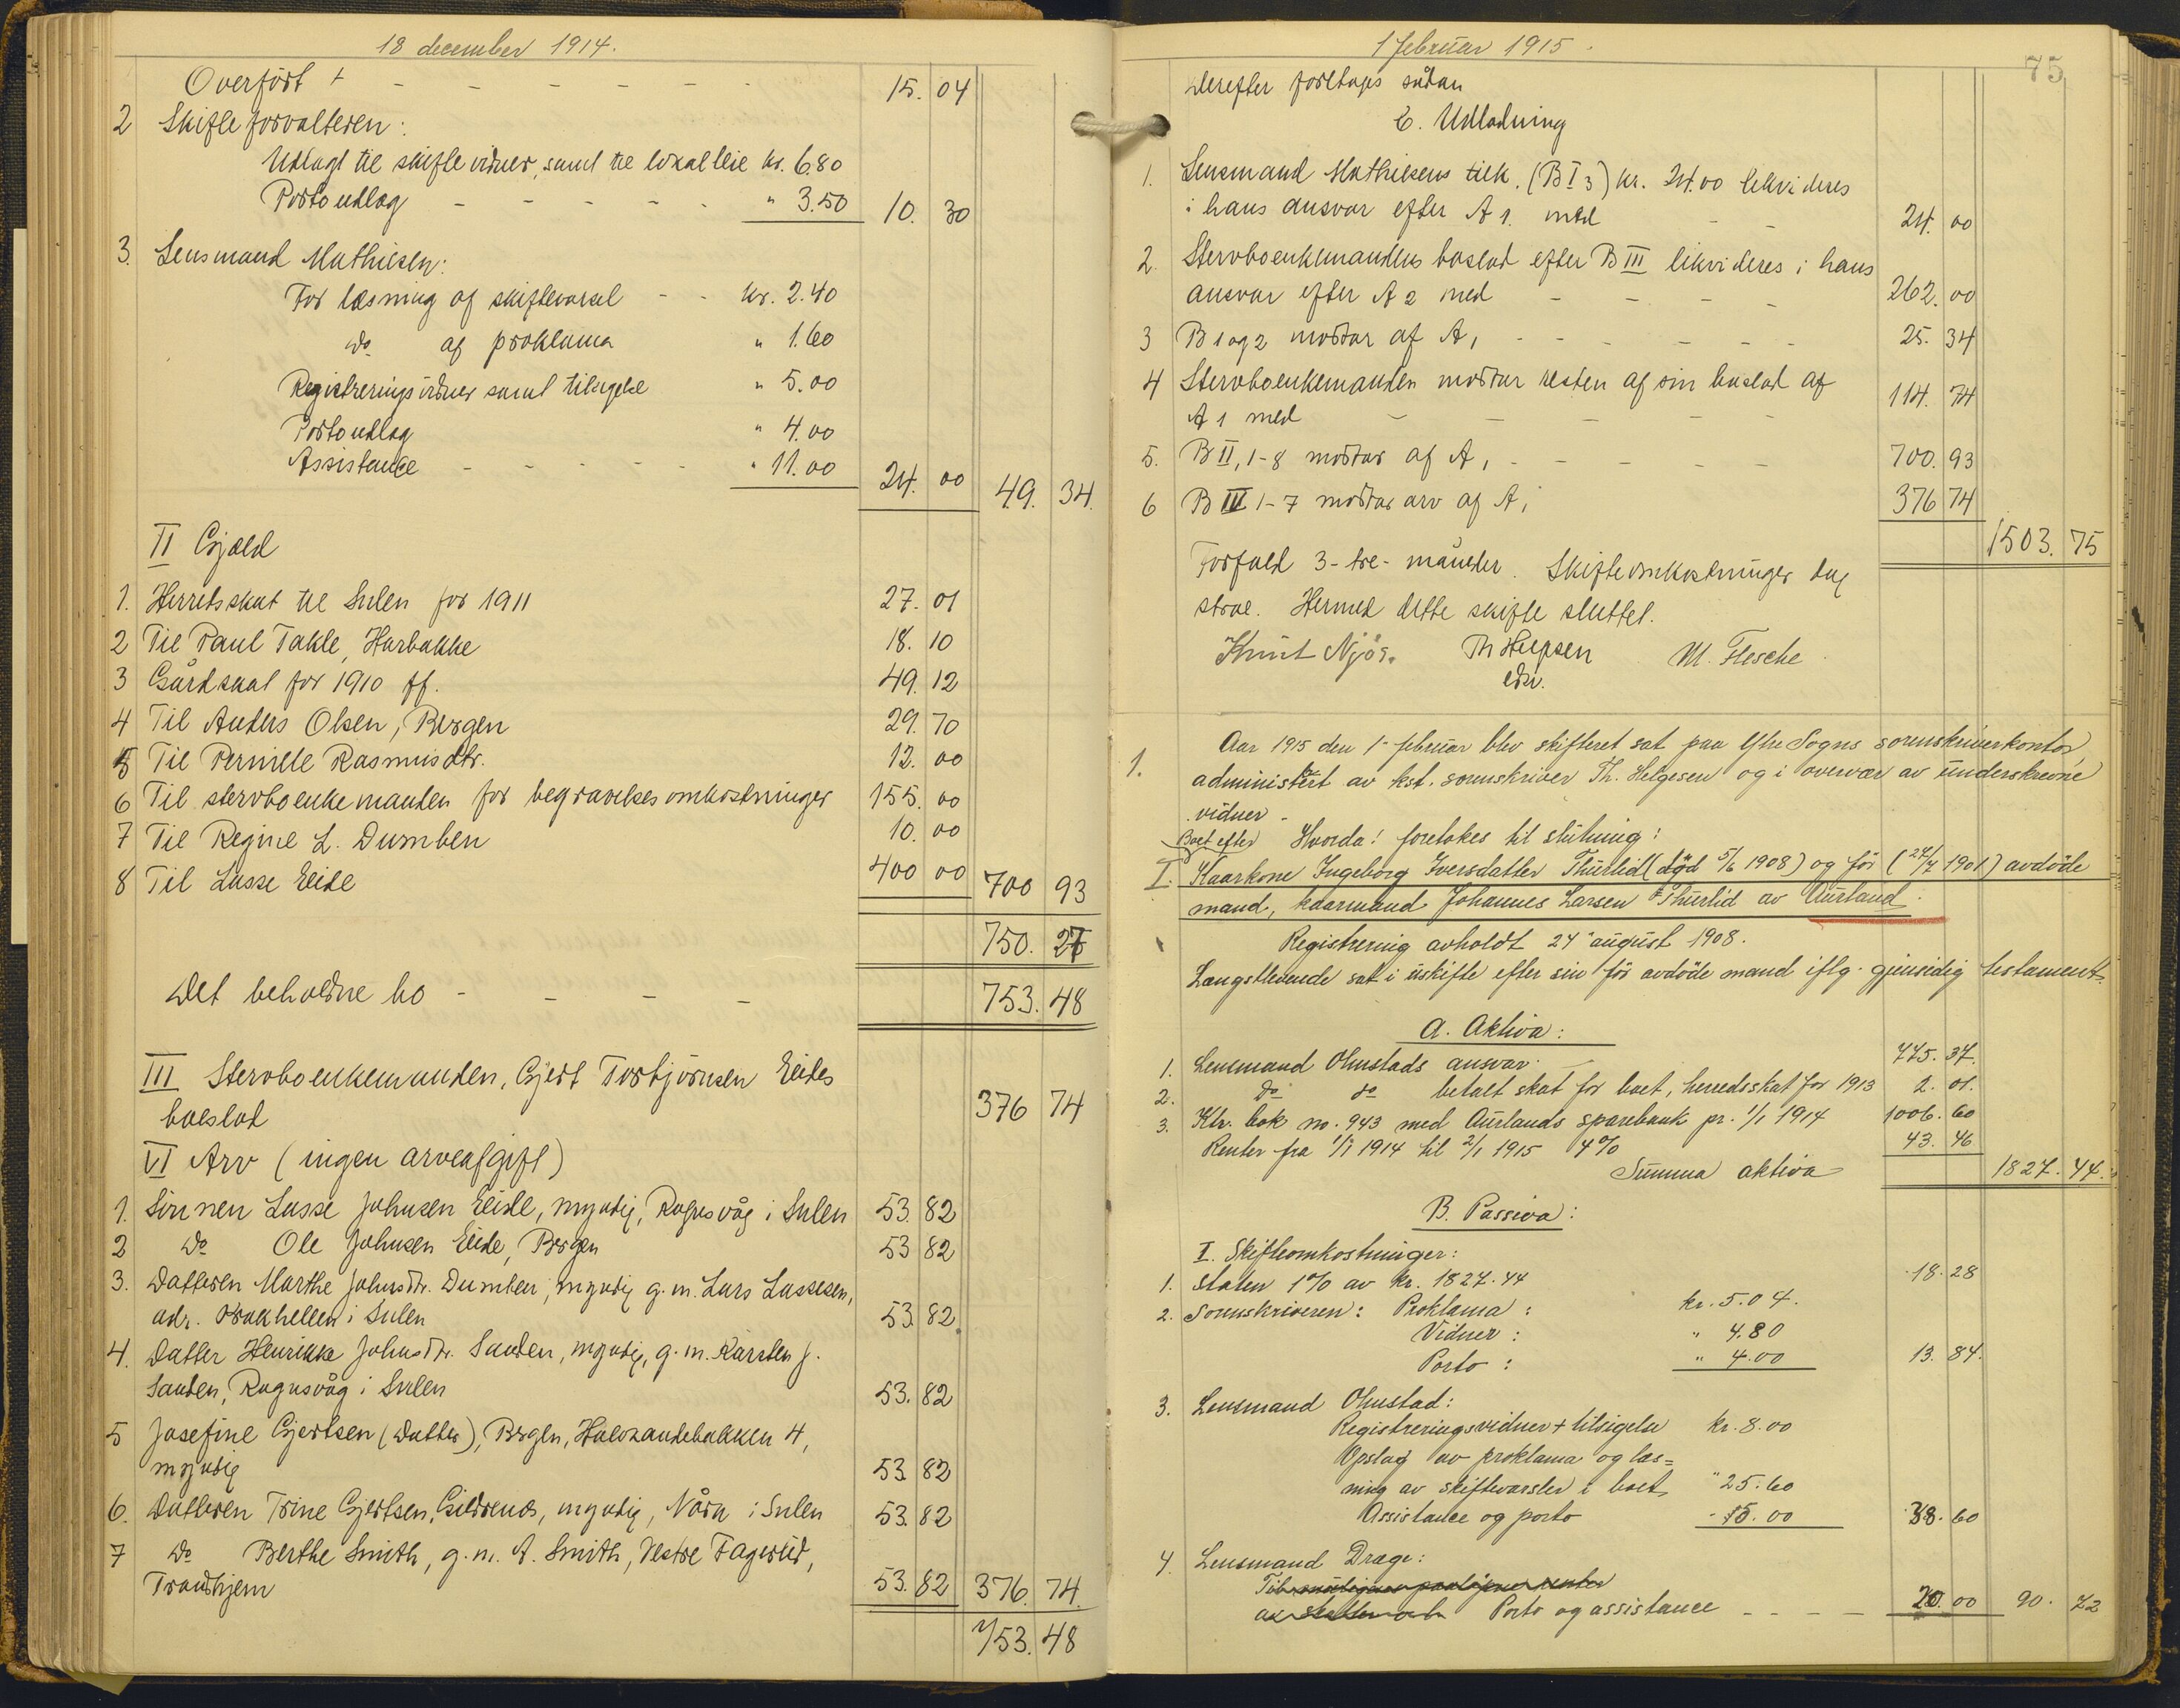 18 december 1914.
Overført + - - - - - - 15. 04
2 Skifteforvalteren:
Udlagt til skiftevidner, samt til lokalleie kr. 6.80
Porto udlæg - - - - - " 3.50 10. 30
3. Lensmand Mathiesen:
For læsning af skiftevarsel - - kr. 2.40
do af proklama " 1.60
Registreringsvidner samt tilsigelse " 5.00
Porto udlæg " 4.00
Assistance - - - - - " 11.00 24. 00 49. 34.
II Gjæld
1. Herredsskat til Sulen for 1911 27. 01
2 Til Paul Takle, Harbakke 18. 10
3 Gårdskat for 1910 ff. 49. 12
4 Til Anders Olsen, Bergen 29. 70
5 Til Pernille Rasmusdtr. 12. 00
6 Til stervboenkemanden for begravelsesomkostninger 155. 00
7 Til Regine L. Dumben 10. 00
8 Til Lasse Eide 400 00 700 93
750. 27
Det beholdne bo - - - - 753. 48
III Stervboenkemanden, Gjert Torbjörnsen Eides
boeslod 376 74
VI Arv (ingen arveafgift)
1. Sönnen Lasse Johnsen Eide, myndig, Rognsvåg i Sulen 53. 82
2 do Ole Johnsen Eide, Bergen 53 82
3. Datteren Marthe Johnsdtr. Dumben, myndig g. m. Lars Lassesen,
adr. Krakhellen i Sulen 53. 82.
4. Datter Henrikke Johnsdtr. Sanden, myndig, g. m. Karsten J.
Sanden, Rognsvåg i Sulen 53. 82
5 Josefine Gjertsen (datter), Bergen,
4,
myndig 53. 82
6. Datteren Trine Gjertsen, myndig, Nåra i Sulen 53. 82
7 do Berthe Smith, g. m. A. Smith, Vestre Fagerlid,
Trondhjem 53. 82 376. 74.
753. 48
1 februar 1915.
75
Derefter foretages sådan
C. Udlodning
1. Lensmand Mathiesens tilk. (B I 3) kr. 24.00 likvideres
i hans ansvar efter A 1. med - - 24. 00
2. Stervboenkemandens boslod efter B III likvideres i hans
ansvar efter A 2 med - - - - 262. 00
3 B 1 og 2 modtar af A 1 - - - - - - 25. 34
4 Stervboenkemanden modtar resten af sin boslod af
A 1 med - - - - - 114. 74
5. B II, 1-8 modtar af A 1 - - - - - 700. 93
6 B IV 1-7 modtar arv af A 1 376 74
1503. 75
Forfald 3-tre-måneder. Skifteomkostninger dog
strax. Hermed dette skifte sluttet.
Knut Njös. Th Helgesen M. Flesche
edsv.
1. Aar 1915 den 1. februar blev skifteret sat paa Ytre Sogns sorenskriverkontor,
administrert av kst. sorenskriver Th. Helgesen og i overvær av underskrevne
vidner.
Boet efter Hvorda! foretokes til slutning:
I. Kaarkone Ingeborg Iversdatter Thurlid (död 5/6 1908) og för (27/7 1901) avdöde
mand, kaarmand Johannes Larsen Thurlid av Aurland.
Registrering avholdt 24 august 1908.
Længstlevende sat i uskifte efter sin för avdöde mand iflg. gjensidig testament.
A. Aktiva:
1. Lensmand Ohnstads ansvar 775. 37.
2. do do betalt skat for boet, herredsskat for 1913 2. 01.
3. Ktr. bok no. 943 med Aurlands sparebank pr. 1/1 1914 1006. 60
Renter fra 1/1 1914 til 2/1 1915 4% 43. 46
Summa aktiva 1827. 44.
B. Passiva:
I. Skifteomkostninger:
1. Staten 1% av kr. 1827.44 18. 28
2. Sorenskriveren: Proklama: kr. 5.04.
Vidner: " 4.80
Porto: " 4.00 13. 84.
3. Lensmand Ohnstad:
Registreringsvidner + tilsigelse kr. 8.00
Opslag av proklama og læs=
ning av skiftevarsler i boet " 25.60
Assistance og porto - 15.00 38. 60
4. Lensmand Drægi:
Porto og assistance - - - - 20. 00 90. 72